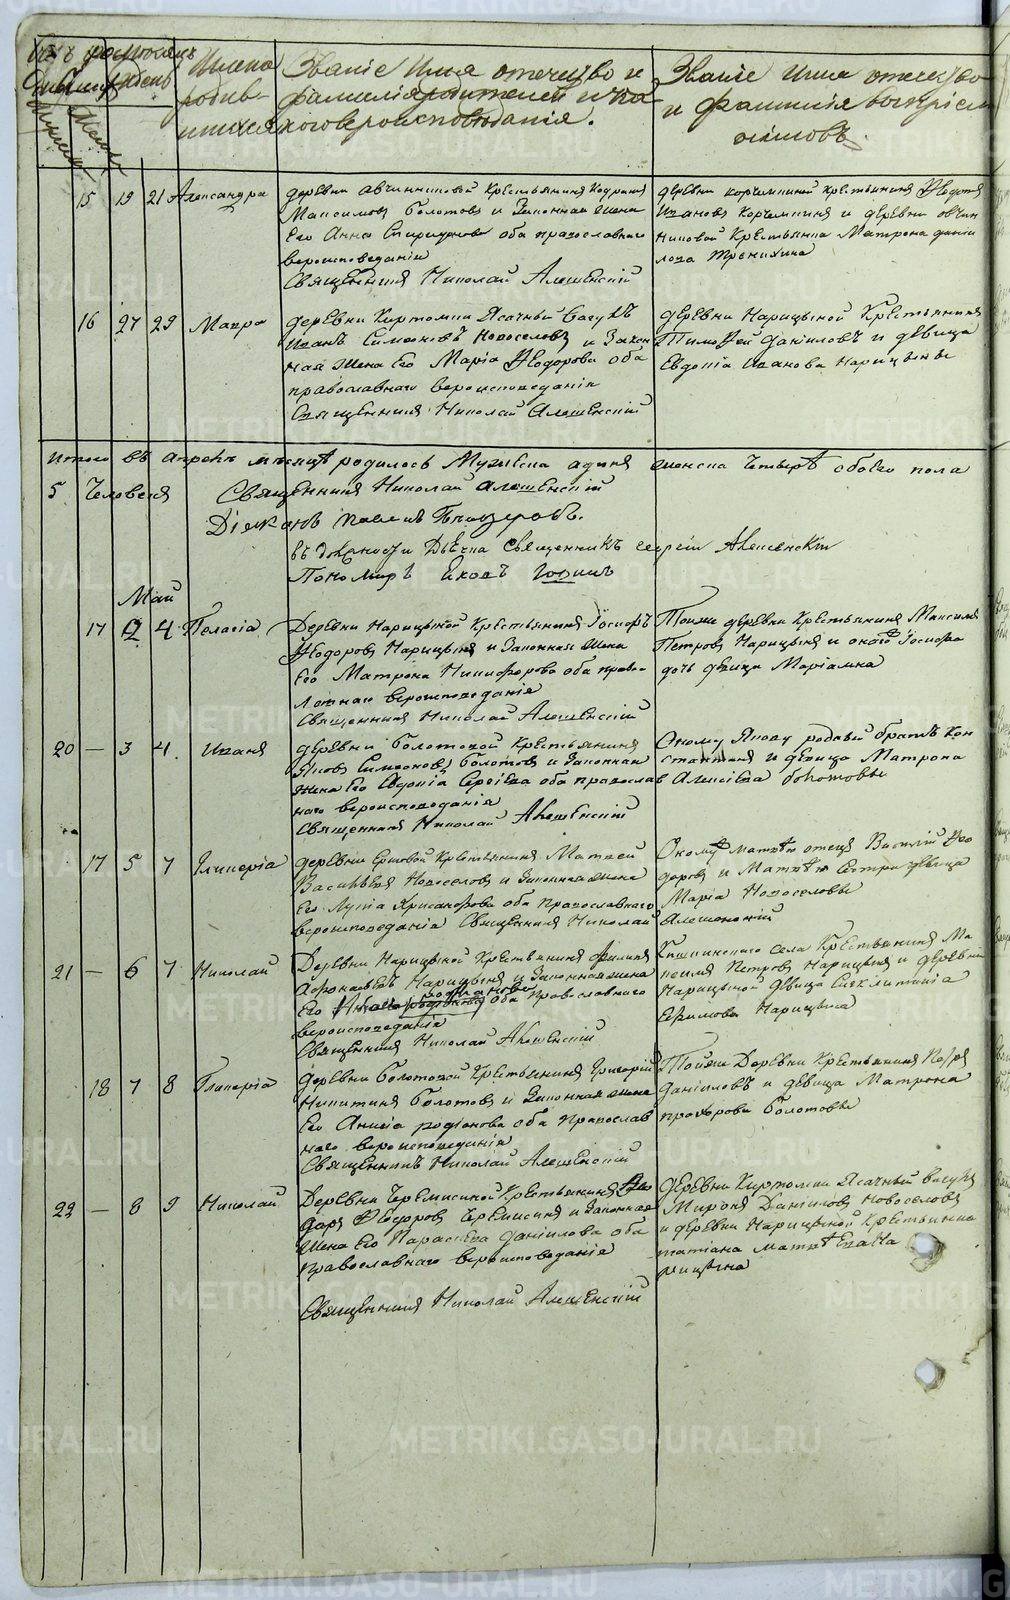 Имена родив-
шихся
Званіе имя отечество и
фамилія родителей и ка
коговероисповѣданія.
Званіе имя отечество
и фамилія восприем
никовъ
15 19 21 Александра
деревни Овчинниковой Крестьянинъ Кодратъ
Максимовъ Болотовъ и Законная жена
Его Анна Спиридонова оба православнаго
вероисповеданія
Священникъ Николай Алешенскій
деревни Корчемкиной Крестьянинъ Ѳедотъ
Ивановъ Корчемкинъ и деревни Овчин
никовой Крестьянка Матрона Данiи
лова
16 27 29 Мавра
деревни Киртомки Ясачный
Иванъ Симеоновъ Новоселовъ и Закон
ная жена Его Марія Ѳеодорова оба
православнаго вероисповеданія
Священникъ Николай Алешенскій
деревни Нарицыной Крестьянинъ
Тимофей Даніиловъ и девица
Евдокія Иванова Нарицыны
итого въ апреле месяцѣ родилось Мужеска одинъ женска Четыре обоего пола
5 Человекъ
Священникъ Николай Алешенскій
Діяконъ Павелъ
въ должности Дьячка Священникъ Алешенскій
Пономарь Яковъ
Май
17 2 4 Пелагія
Деревни Нарицыной Крестьянинъ Іосифъ
Ѳеодоровъ Нарицынъ и Законная жена
Его Матрона Никифорова оба право
славнаго вероисповеданія
Священникъ Николай Алешенскій
Тояже деревни Крестьянинъ Максимъ
Петровъ Нарицынъ и оного Іосифа
дочь девица Маріамна
20 — 3 4. Иванъ
деревни Болотовой Крестьянинъ
Яковъ Симеоновъ Болотовъ и Законная
жена Его Евдокія Сергіева оба православ
наго вероисповеданія
Священникъ Николай Алешенскій
Оному Якову родной братъ Кон
стантинъ и девица Матрона
Алексіева Болотовы
17 5 7 Гликерія
деревни Ершовой Крестьянинъ Матвей
Васильевъ Новоселовъ и Законная жена
Его Лукія Хрисанфова оба православнаго
вероисповеданія Священникъ Николай Алешенскій
Оному Матвѣю отецъ Василій Ѳео
доровъ и Матвѣю Сестра девица
Марія Новоселовы
21 — 6 7 Николай
Деревни Нарицыной Крестьянинъ Филиппъ
Афонасьевъ Нарицынъ и Законная жена
Его родіонова оба православнаго
вероисповеданія
Священникъ Николай Алешенскій
села Крестьянинъ Ма
ксимъ Петровъ Нарицынъ и деревни
Нарицыной девица Синклитикія
Ефимова Нарицына
18 7 8 Гликерія
деревни Болотовой Крестьянинъ Григорій
Никитинъ Болотовъ и Законная жена
Его Анисія родіонова оба православ
наго вероисповеданія
Священникъ Николай Алешенскій
Тойже Деревни Крестьянинъ Карпъ
Даніиловъ и девица Матрона
прохорова Болотовы
22 — 8 9 Николай
Деревни Черемисиной Крестьянинъ Ѳео
доръ Ѳеодоровъ Черемисинъ и Законная
жена Его Параскева Даніилова оба
православнаго вероисповеданія
Священникъ Николай Алешенскій
деревни Киртомки Ясачный
Миронъ Даніиловъ Новоселовъ
и деревни Нарицыной Крестьянка
татіана Матвѣева На
рицына